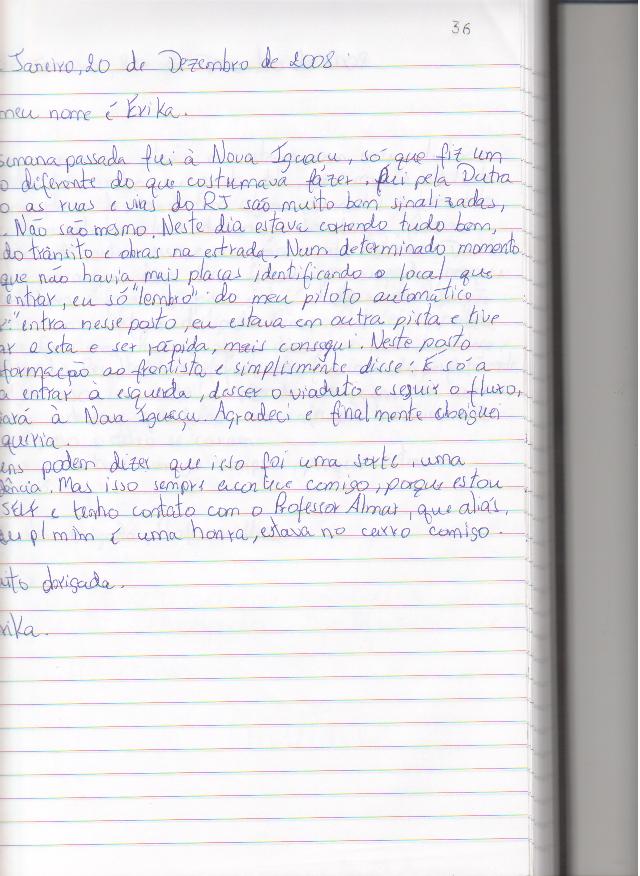 36
Janeiro, 20 de Dezembro de 2008.
meu nome é Érika.
semana passada fui à Nova Iguaçu, só que fiz um
o diferente do que costumava fazer, fui pela Dutra
o as ruas e vias do RJ são muito bem sinalizadas,
. Não são mesmo. Neste dia estava correndo tudo bem,
do trânsito e obras na estrada. Num determinado momento
que não havia mais placas identificando o local, que
entrar, eu só "lembro" do meu piloto automático
: "entra nesse posto, eu estava em outra pista e tive
ar a seta e ser rápida, mais consegui. Neste posto
formação ao frentista e simplismente disse: É só a
a entrar à esquerda, descer o viaduto e seguir o fluxo,
ará à Nova Iguaçu. Agradeci e finalmente cheguei
queria.
ens podem dizer que isso foi uma sorte, uma
dência. Mas isso sempre acontece comigo, porque estou
SELF e tenho contato com o Professor Almar, que aliás,
eu p/ mim é uma honra, estava no carro comigo.
uito obrigada.
rika.